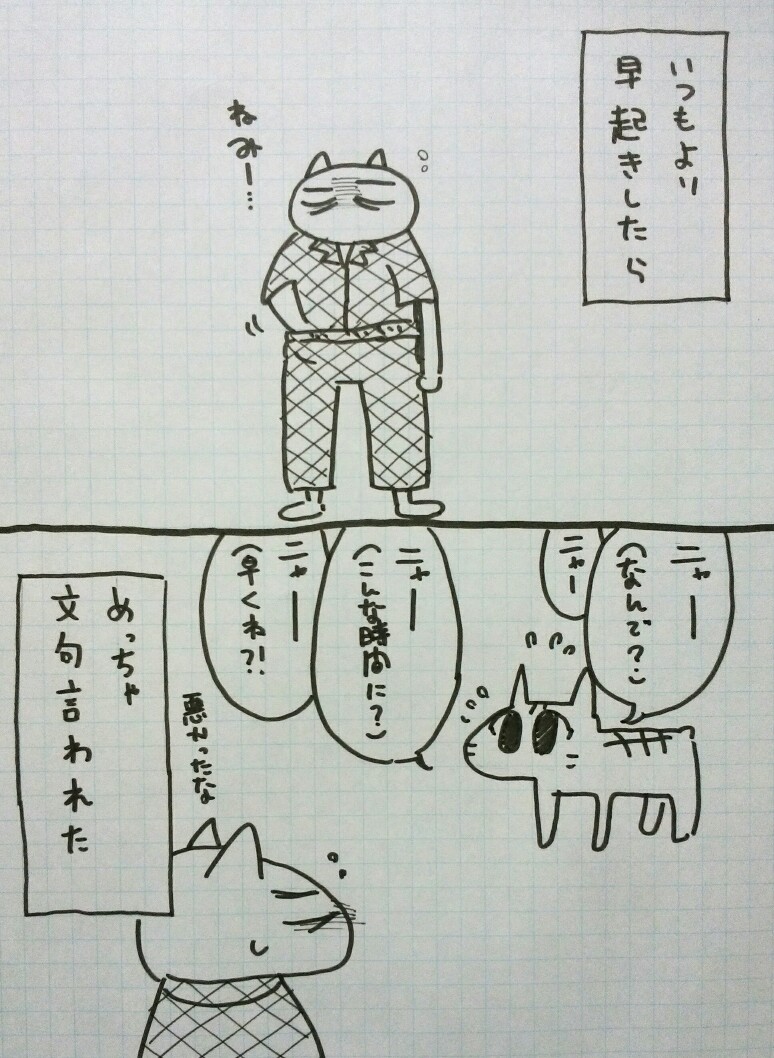 いつもより
早起きしたら
ねみー…
ニャー
(なんで?)
ニャー
ニャー
(こんな時間に?)
ニャー
(早くね?!)
悪かったな
めっちゃ
文句言われた